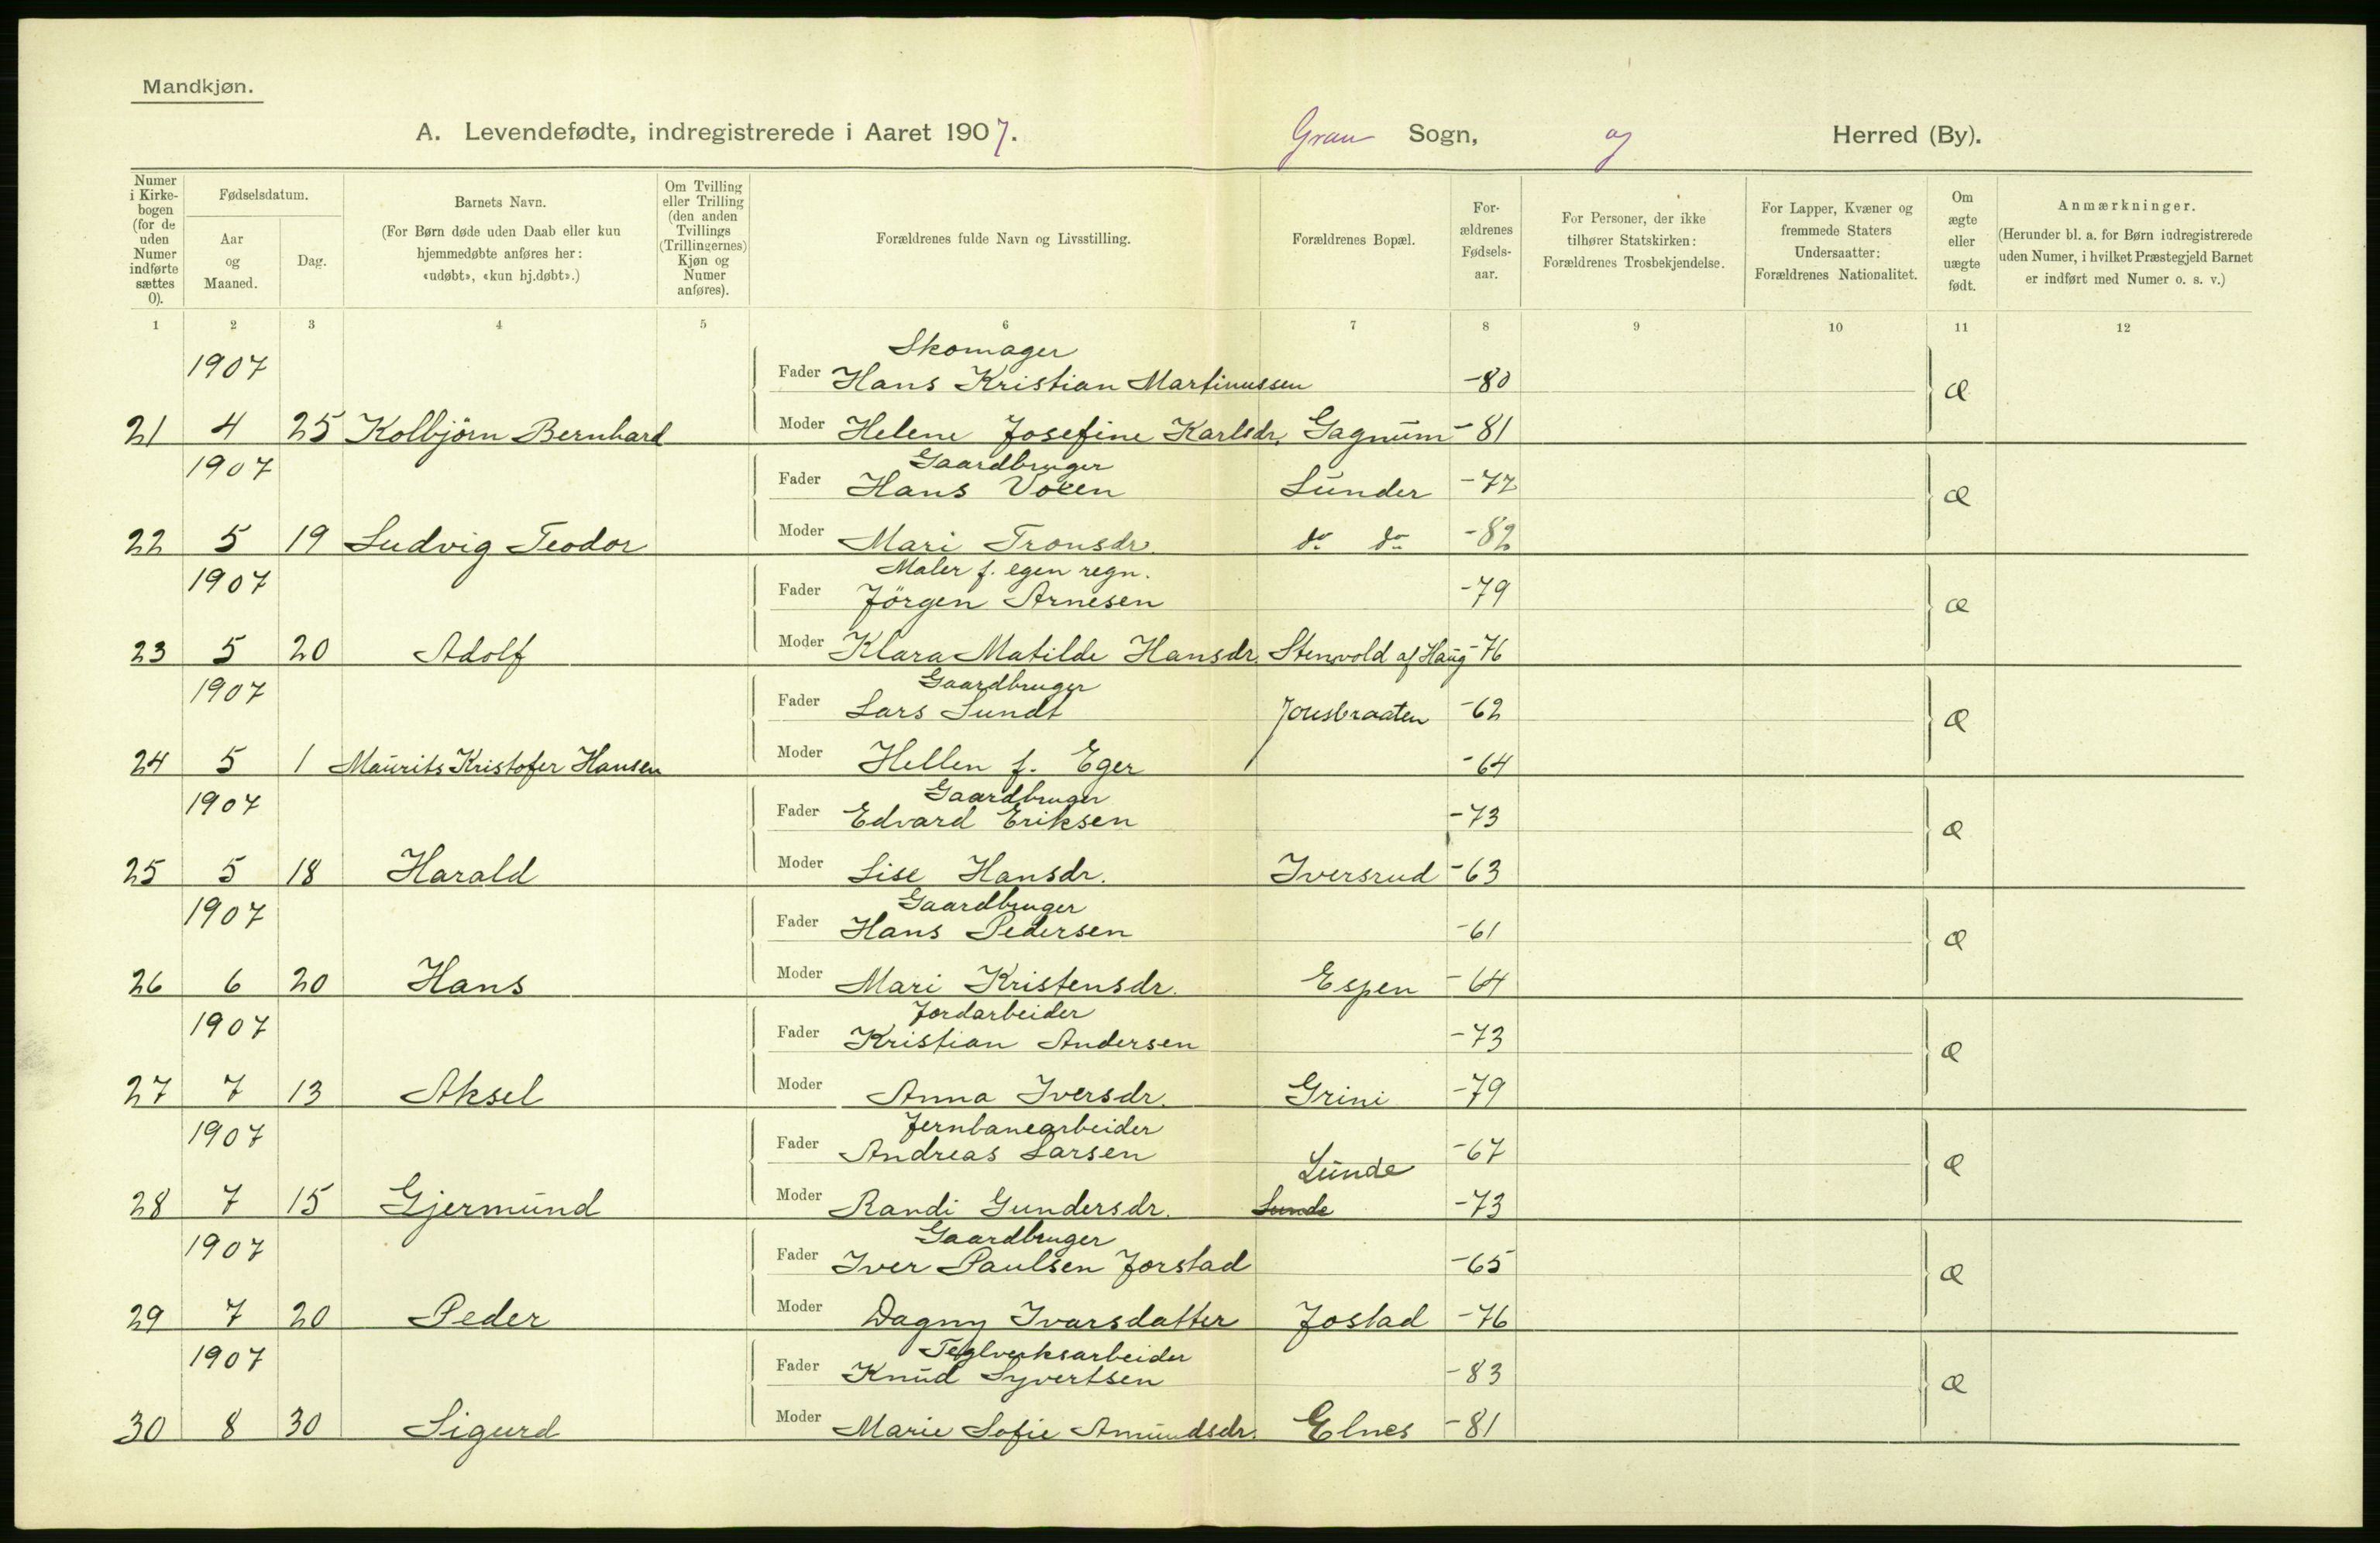 Mandkjøn.
A. Levendefødte, indregistrerede i Aaret 1907. Gran Sogn, og Herred (By).
Numer i Kirkebogen (for de uden Numer indførte sættes 0).
Fødselsdatum.
Aar og Maaned.
Dag.
Barnets Navn.
(For Børn døde uden Daab eller kun hjemmedøbte anføres her: «udøbt», «kun hj.døbt».)
Om Tvilling eller Trilling (den anden Tvillings (Trillingernes) Kjøn og Numer anføres).
Forældrenes fulde Navn og Livsstilling.
Forældrenes Bopæl.
For-ældrenes Fødsels-aar.
For Personer, der ikke tilhører Statskirken: Forældrenes Trosbekjendelse.
For Lapper, Kvæner og fremmede Staters Undersaatter: Forældrenes Nationalitet.
Om ægte eller uægte født.
Anmærkninger.
(Herunder bl. a. for Børn indregistrerede uden Numer, i hvilket Præstegjeld Barnet er indført med Numer o. s. v.)
1 2 3 4 5 6 7 8 9 10 11 12
Skomager
1907 Fader Hans Kristian Martinussen -80 æ
21 4 25 Kolbjörn Bernhard Moder Helene Josefine Karlsdr. Gagnum -81
Gaardbruger
1907 Fader Hans Voien Lunder -77 æ
22 5 19 Ludvig Teodor Moder Mari Tronsdr. do do -82
Maler f. egen regn.
1907 Fader Jörgen Arnesen -79 æ
23 5 20 Adolf Moder Klara Matilde Hansdr. Stenvold af Haug -76
Gaardbruger
1907 Fader Lars Lundt Jonsbraaten -62 æ
24 5 1 Maurits Kristofer Hansen Moder Hellen f. Eger -64
Gaardbruger
1907 Fader Edvard Eriksen -73 æ
25 5 18 Harald Moder Lise Hansdr. Iversrud -63
Gaardbruger
1907 Fader Hans Pedersen -61 æ
26 6 20 Hans Moder Mari Kristensdr. Espen -64
Jordarbeider
1907 Fader Kristian Andersen -73 æ
27 7 13 Aksel Moder Anna Iversdr. Grini -79
Jernbanearbeider
1907 Fader Andreas Larsen Lunde -67 æ
28 7 15 Gjermund Moder Randi Gundersdr. Lunde -73
Gaardbruger
1907 Fader Iver Paulsen Jorstad -65 æ
29 7 20 Peder Moder Dagny Ivarsdatter Jostad -76
Teglverksarbeider
1907 Fader Knud Syvertsen -83 æ
30 8 30 Sigurd Moder Marie Sofie Amundsdr. Elnes -81